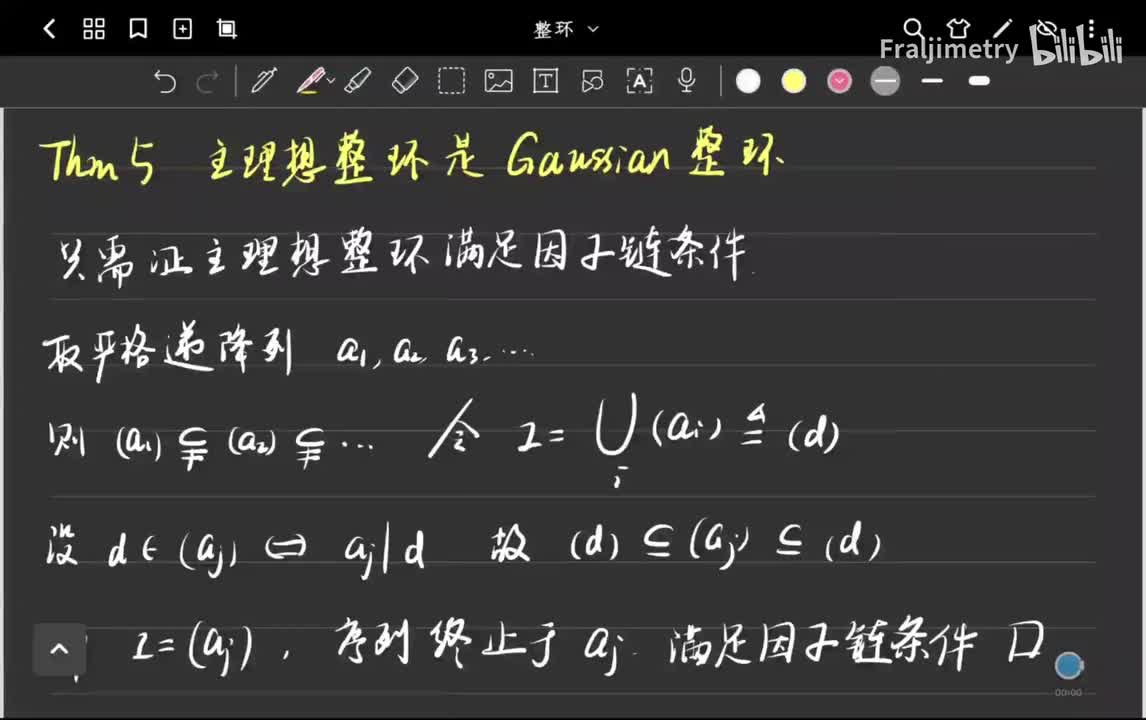 整环
Fraljimetry bilibili
Thm 5 主理想整环是 Gaussian 整环
只需证主理想整环满足因子链条件.
取严格递降列 a₁, a₂, a₃, ...
则 (a₁) ⊊ (a₂) ⊊ ... 令 I = ⋃ᵢ (aᵢ) ≜ (d)
设 d ∈ (aⱼ) ⇔ aⱼ | d 故 (d) ⊆ (aⱼ) ⊆ (d)
I = (aⱼ), 序列终止于 aⱼ. 满足因子链条件 □
00:00